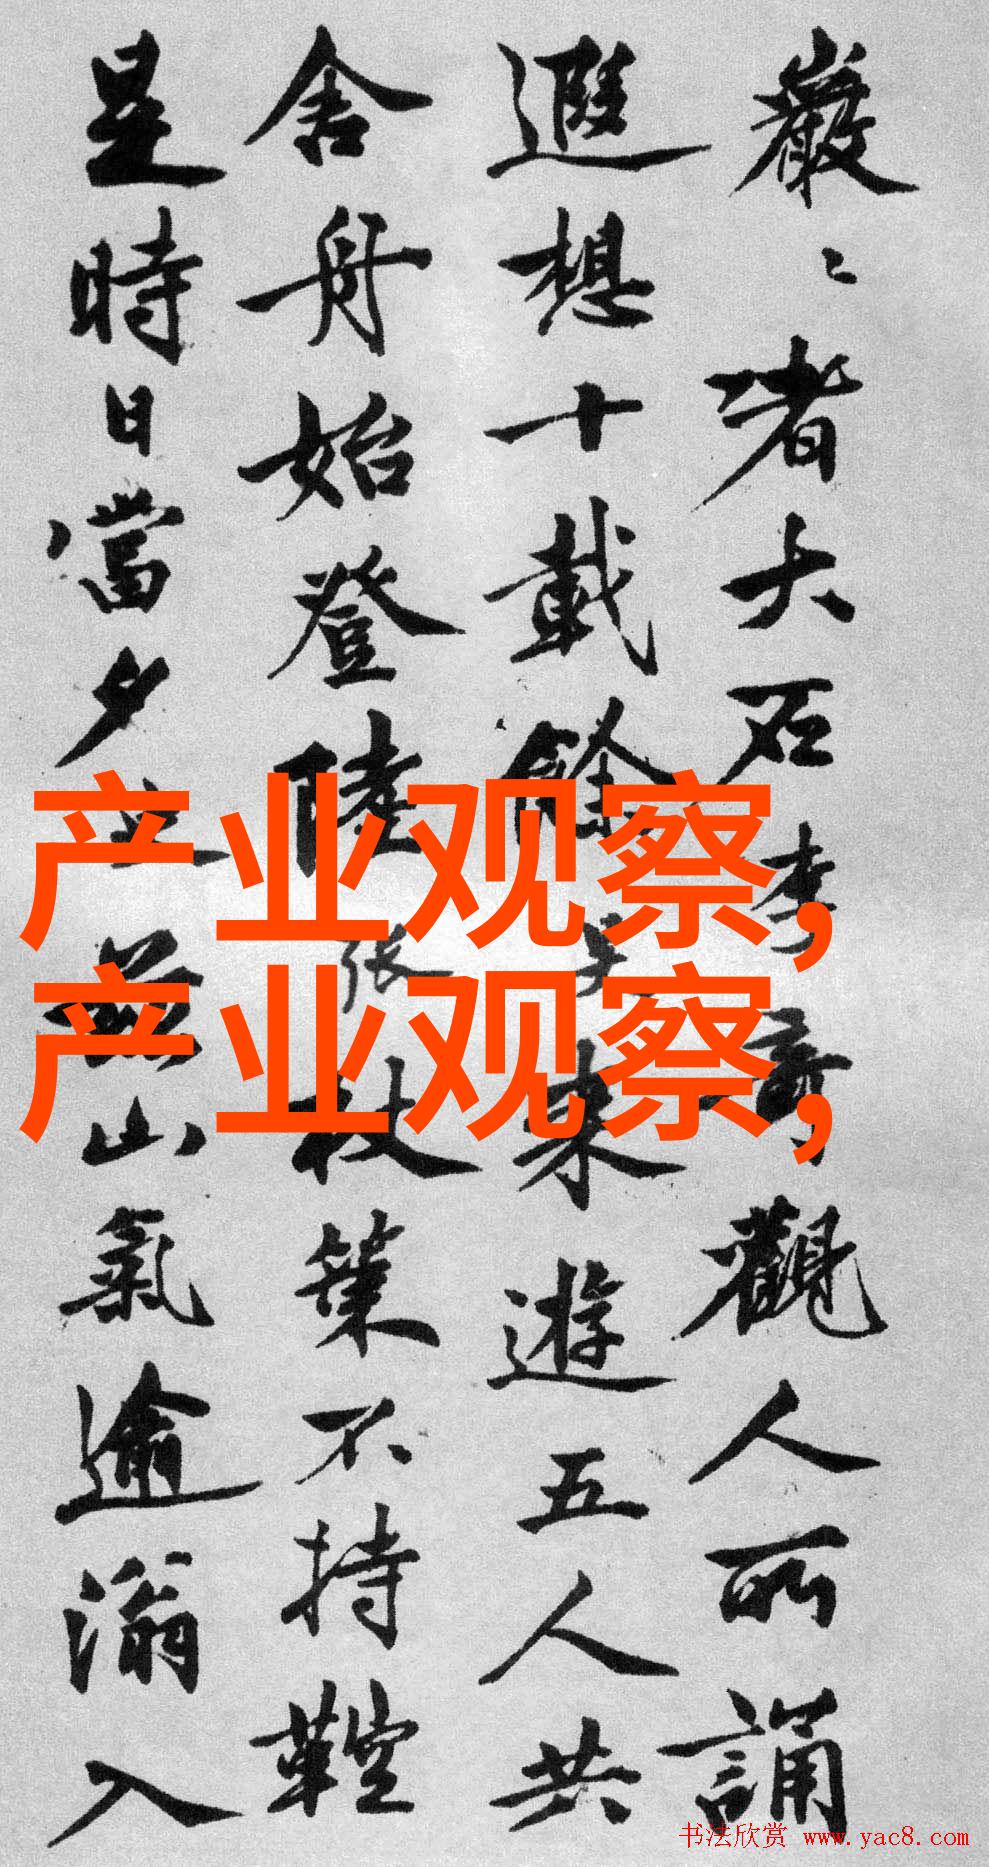 巖〻者大石李觀人所誦
遐想十載餘來遊五人共
舍舟始登陸張杖策不持鞚
是時日當夕茲山氣逾滃入
产业观察,
产业观察,
书法欣赏 www.yac8.com